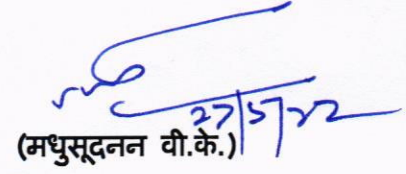 27/5/22
(मधुसूदनन वी.के.)